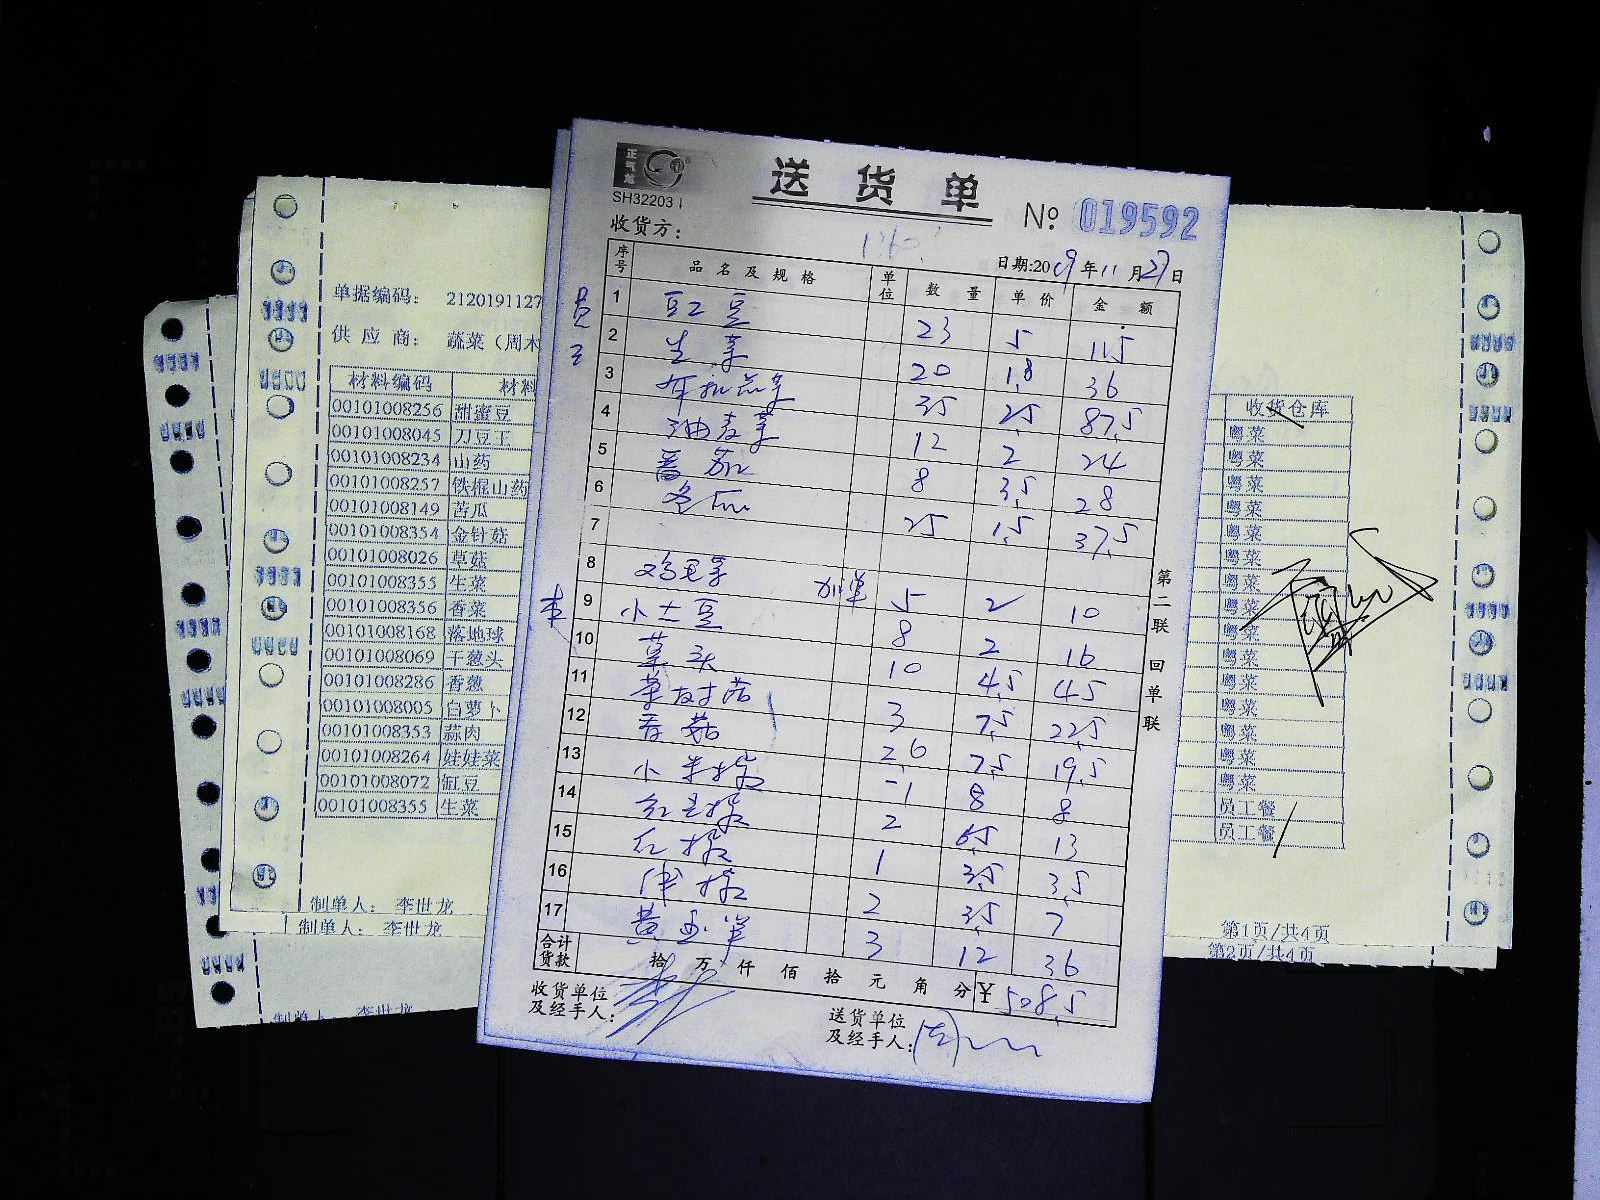 正气龙
SH32203
送货单
No: 019592
收货方:
日期:2019年11月27日
序号 品名及规格 单位 数量 单价 金额
1 豇豆 23 5 115
2 生菜 20 1.8 36
3 35 2.5 87.5
4 油麦菜 12 2 24
5 番茄 8 3.5 28
6 冬瓜 25 1.5 37.5
7
8 鸡毛菜 加单 5 2 10
9 小土豆 8 2 16
10 10 4.5 45
11 3 7.5 22.5
12 香菇 2.6 7.5 19.5
13 小米椒 1 8 8
14 2 6.5 13
15 红椒 1 3.5 3.5
16 2 3.5 7
17 3 12 36
合计货款 拾 万 仟 佰 拾 元 角 分 ¥ 508.5
收货单位及经手人:
送货单位及经手人:
第二联 回单联
单据编码: 2120191127
供应商: 蔬菜(周木
材料编码 材料
00101008256 甜蜜豆
00101008045 刀豆王
00101008234 山药
00101008257 铁棍山药
00101008149 苦瓜
00101008354 金针菇
00101008026 草菇
00101008355 生菜
00101008356 香菜
00101008168 落地球
00101008069 干葱头
00101008286 香葱
00101008005 白萝卜
00101008353 蒜肉
00101008264 娃娃菜
00101008072 缸豆
00101008355 生菜
制单人: 李世龙
制单人: 李世龙
制单人 李世龙
收货仓库
粤菜
粤菜
粤菜
粤菜
粤菜
粤菜
粤菜
粤菜
粤菜
粤菜
粤菜
粤菜
粤菜
粤菜
粤菜
员工餐
员工餐
第1页/共4页
第2页/共4页